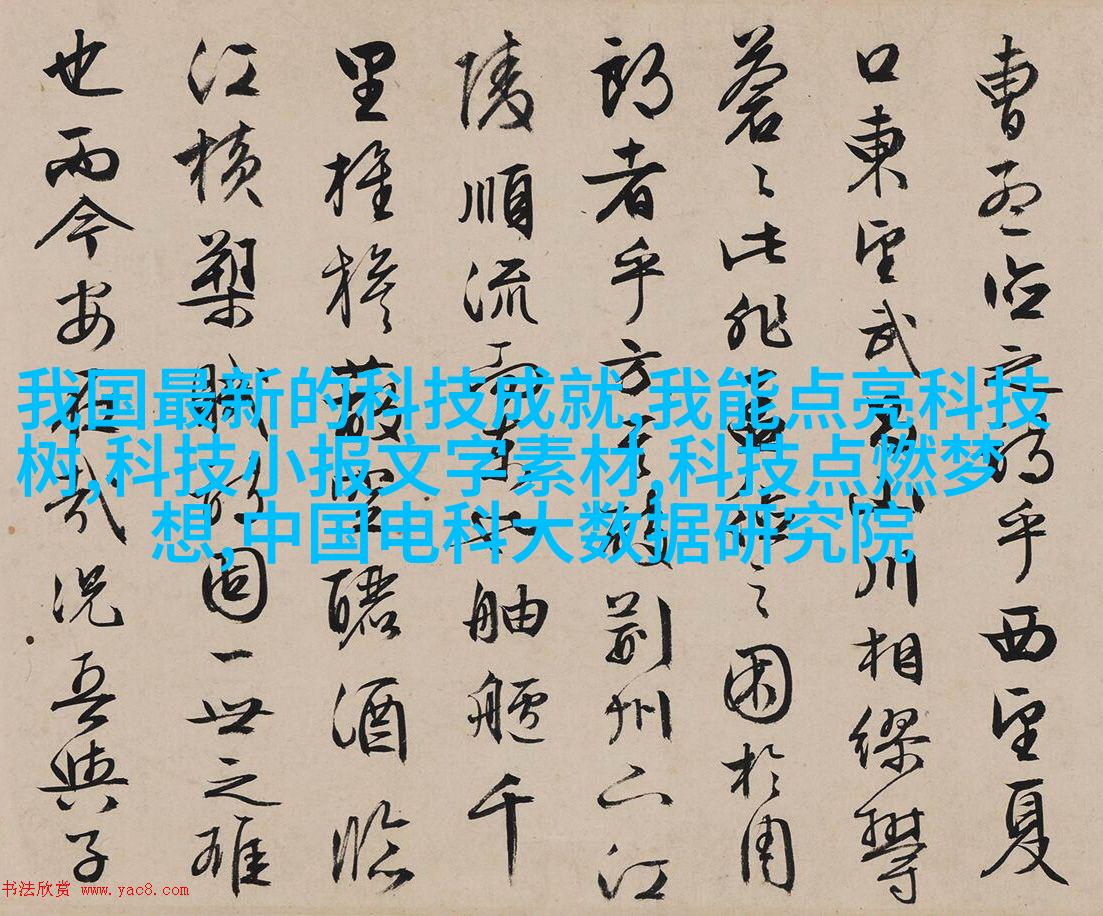 曹孟德之詩乎西望夏
口東望武昌山川相繆鬱
蒼〻此非孟德之困於周
郎者乎方其破荊州下江
陵順流而東也舳艫千
里旌旗蔽空釃酒臨
江橫槊賦詩固一世之雄
也而今安在哉況吾與子
我国最新的科技成就,我能点亮科技
树,科技小报文字素材,科技点燃梦
想,中国电科大数据研究院
书法欣赏 www.yac8.com